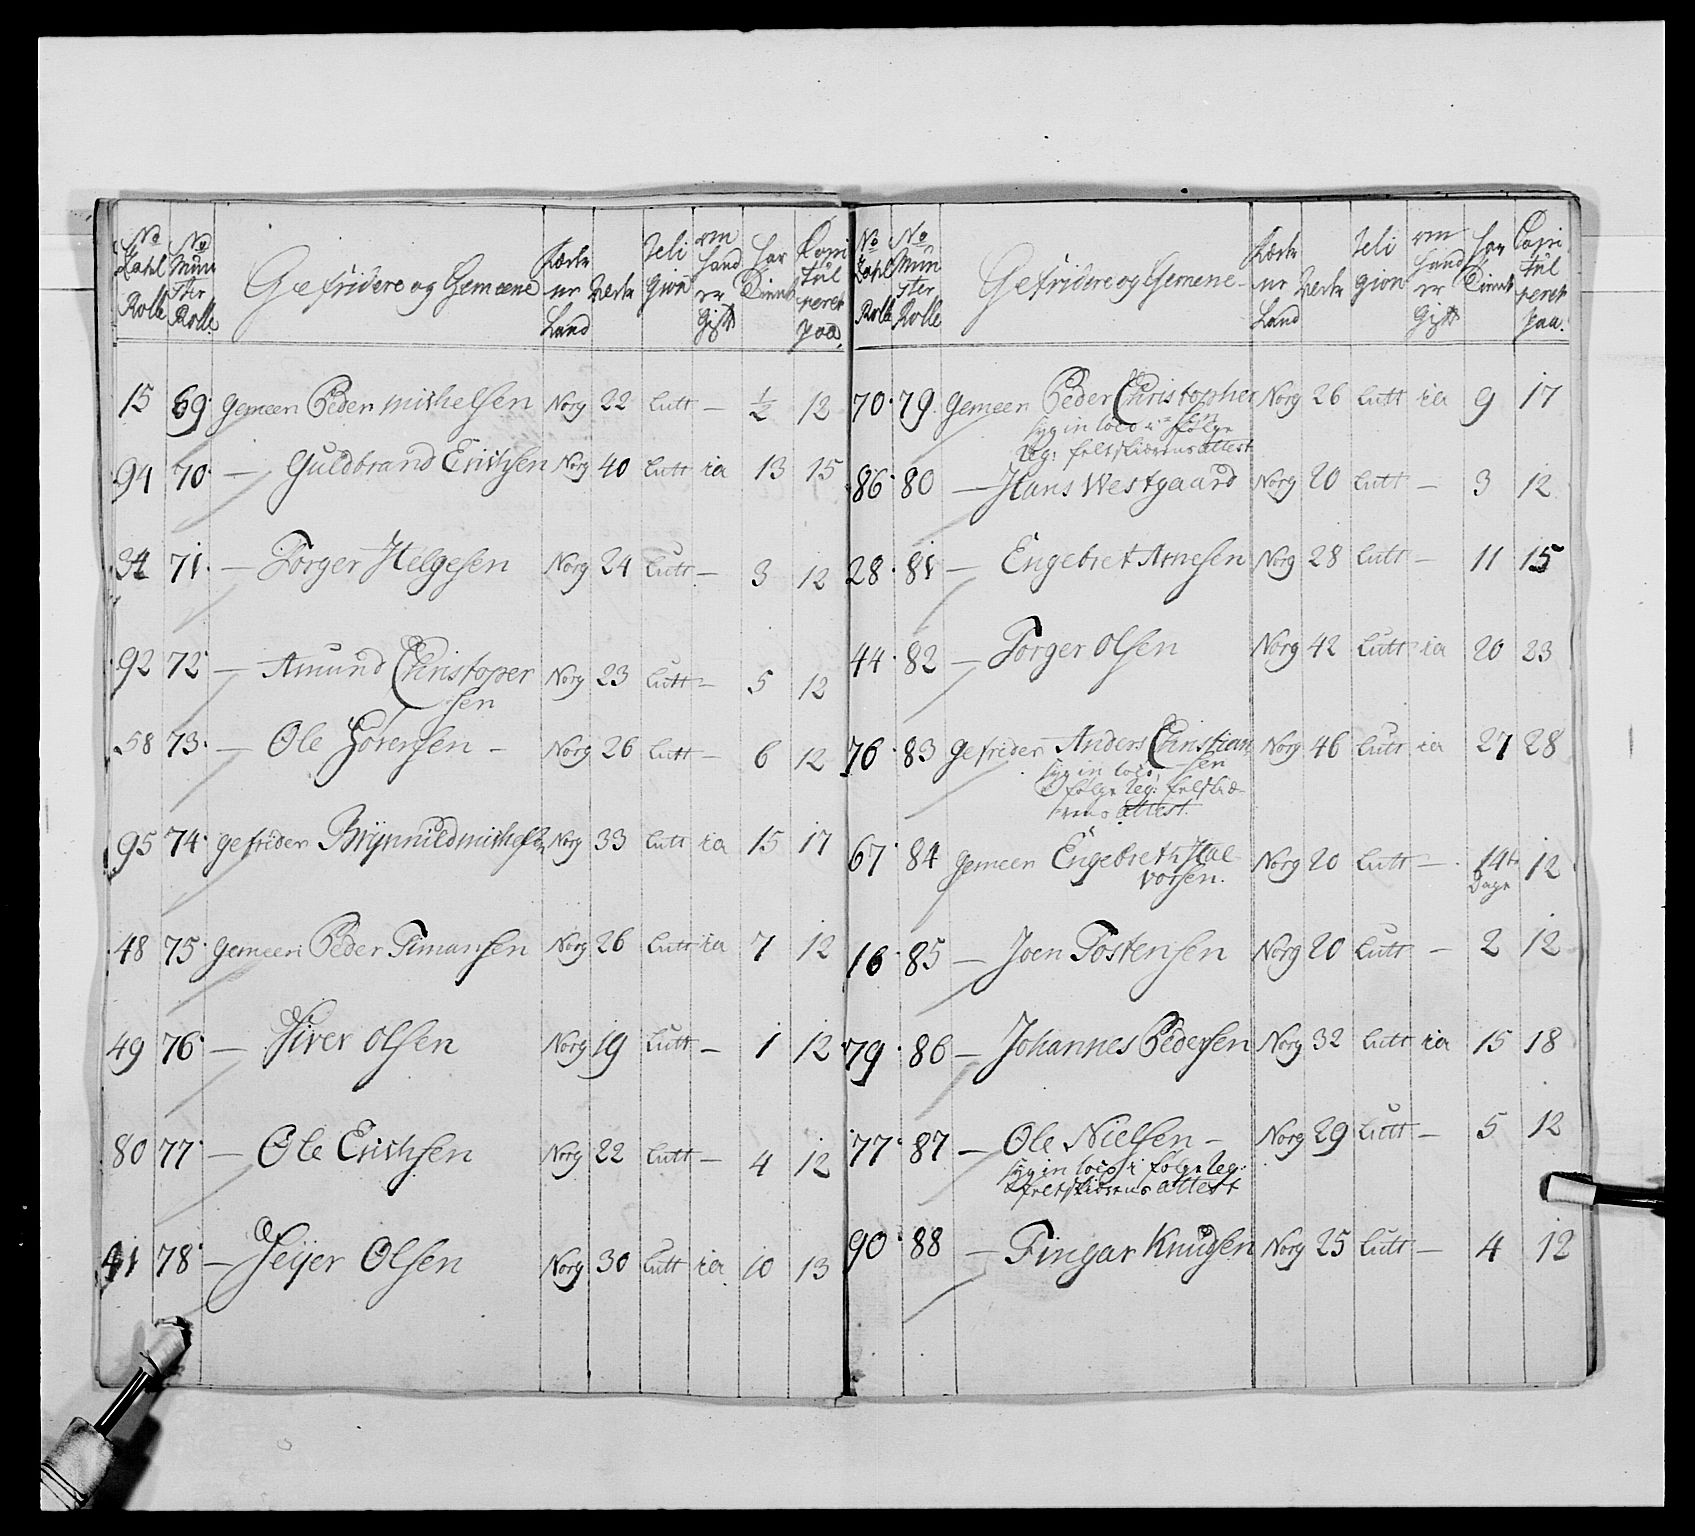 No No Gefridere og Gemeene Relli om har Capi
Rolle Mun ster Rolle Land gion hand er Gift tient tul peret paa.
15 69. gemeen Peder Michelsen Norg 22 Lutt — ½ 12
94 70. — Guldbrand Erichsen Norg 40 Lutt ia 13 15
34 71. — Torger Helgesen Norg 24 Lutt — 3 12
92 72. — Amund Christoper Norg 23 Lutt — 5 12
sen
58 73. — Ole Sörensen — Norg 26 Lutt — 6 12
95 74. gefrider Brÿnnild Michelsen Norg 33 Lutt ia 15 17
48 75. gemeen Peder Timansen Norg 26 Lutt ia 7 12
49 76. — Siver Olsen Norg 19 Lutt — 1 12
80 77. — Ole Erichsen Norg 22 Lutt — 4 12
41 78. — Seijer Olsen Norg 30 Lutt ia 10 13
No No Gefridere og Gemene
Rolle Mun ster Rolle Land gion hand er Gift tient tul peret paa.
70. 79. gemeen Peder Christopher Norg 26 Lutt ia 9 17
sen
syg in loco i følge
Reg: feltskierens attest
86. 80 — Hans Westgaard Norg 20 Lutt — 3 12
28. 81 — Engebret Arnesen Norg 28 Lutt — 11 15
44. 82 — Torger Olsen Norg 42 Lutt ia 20 23
76. 83 gefrider Anders Christian Norg 46 Lutt ia 27 28
sen
syg in loco
i følge Reg: feltskiæ-
rens attest.
67. 84 gemeen Engebreth Hal Norg 20 Lutt — 14 12
vorsen. Dage
16. 85 — Joen Tostensen Norg 20 Lutt — 2 12
79. 86 — Johannes Pedersen Norg 32 Lutt ia 15 18
77. 87 — Ole Nielsen — Norg 29 Lutt — 5 12
syg in loco i følge Reg:
feltskierens attest
90. 88 — Fingar Knudsen Norg 25 Lutt — 4 12